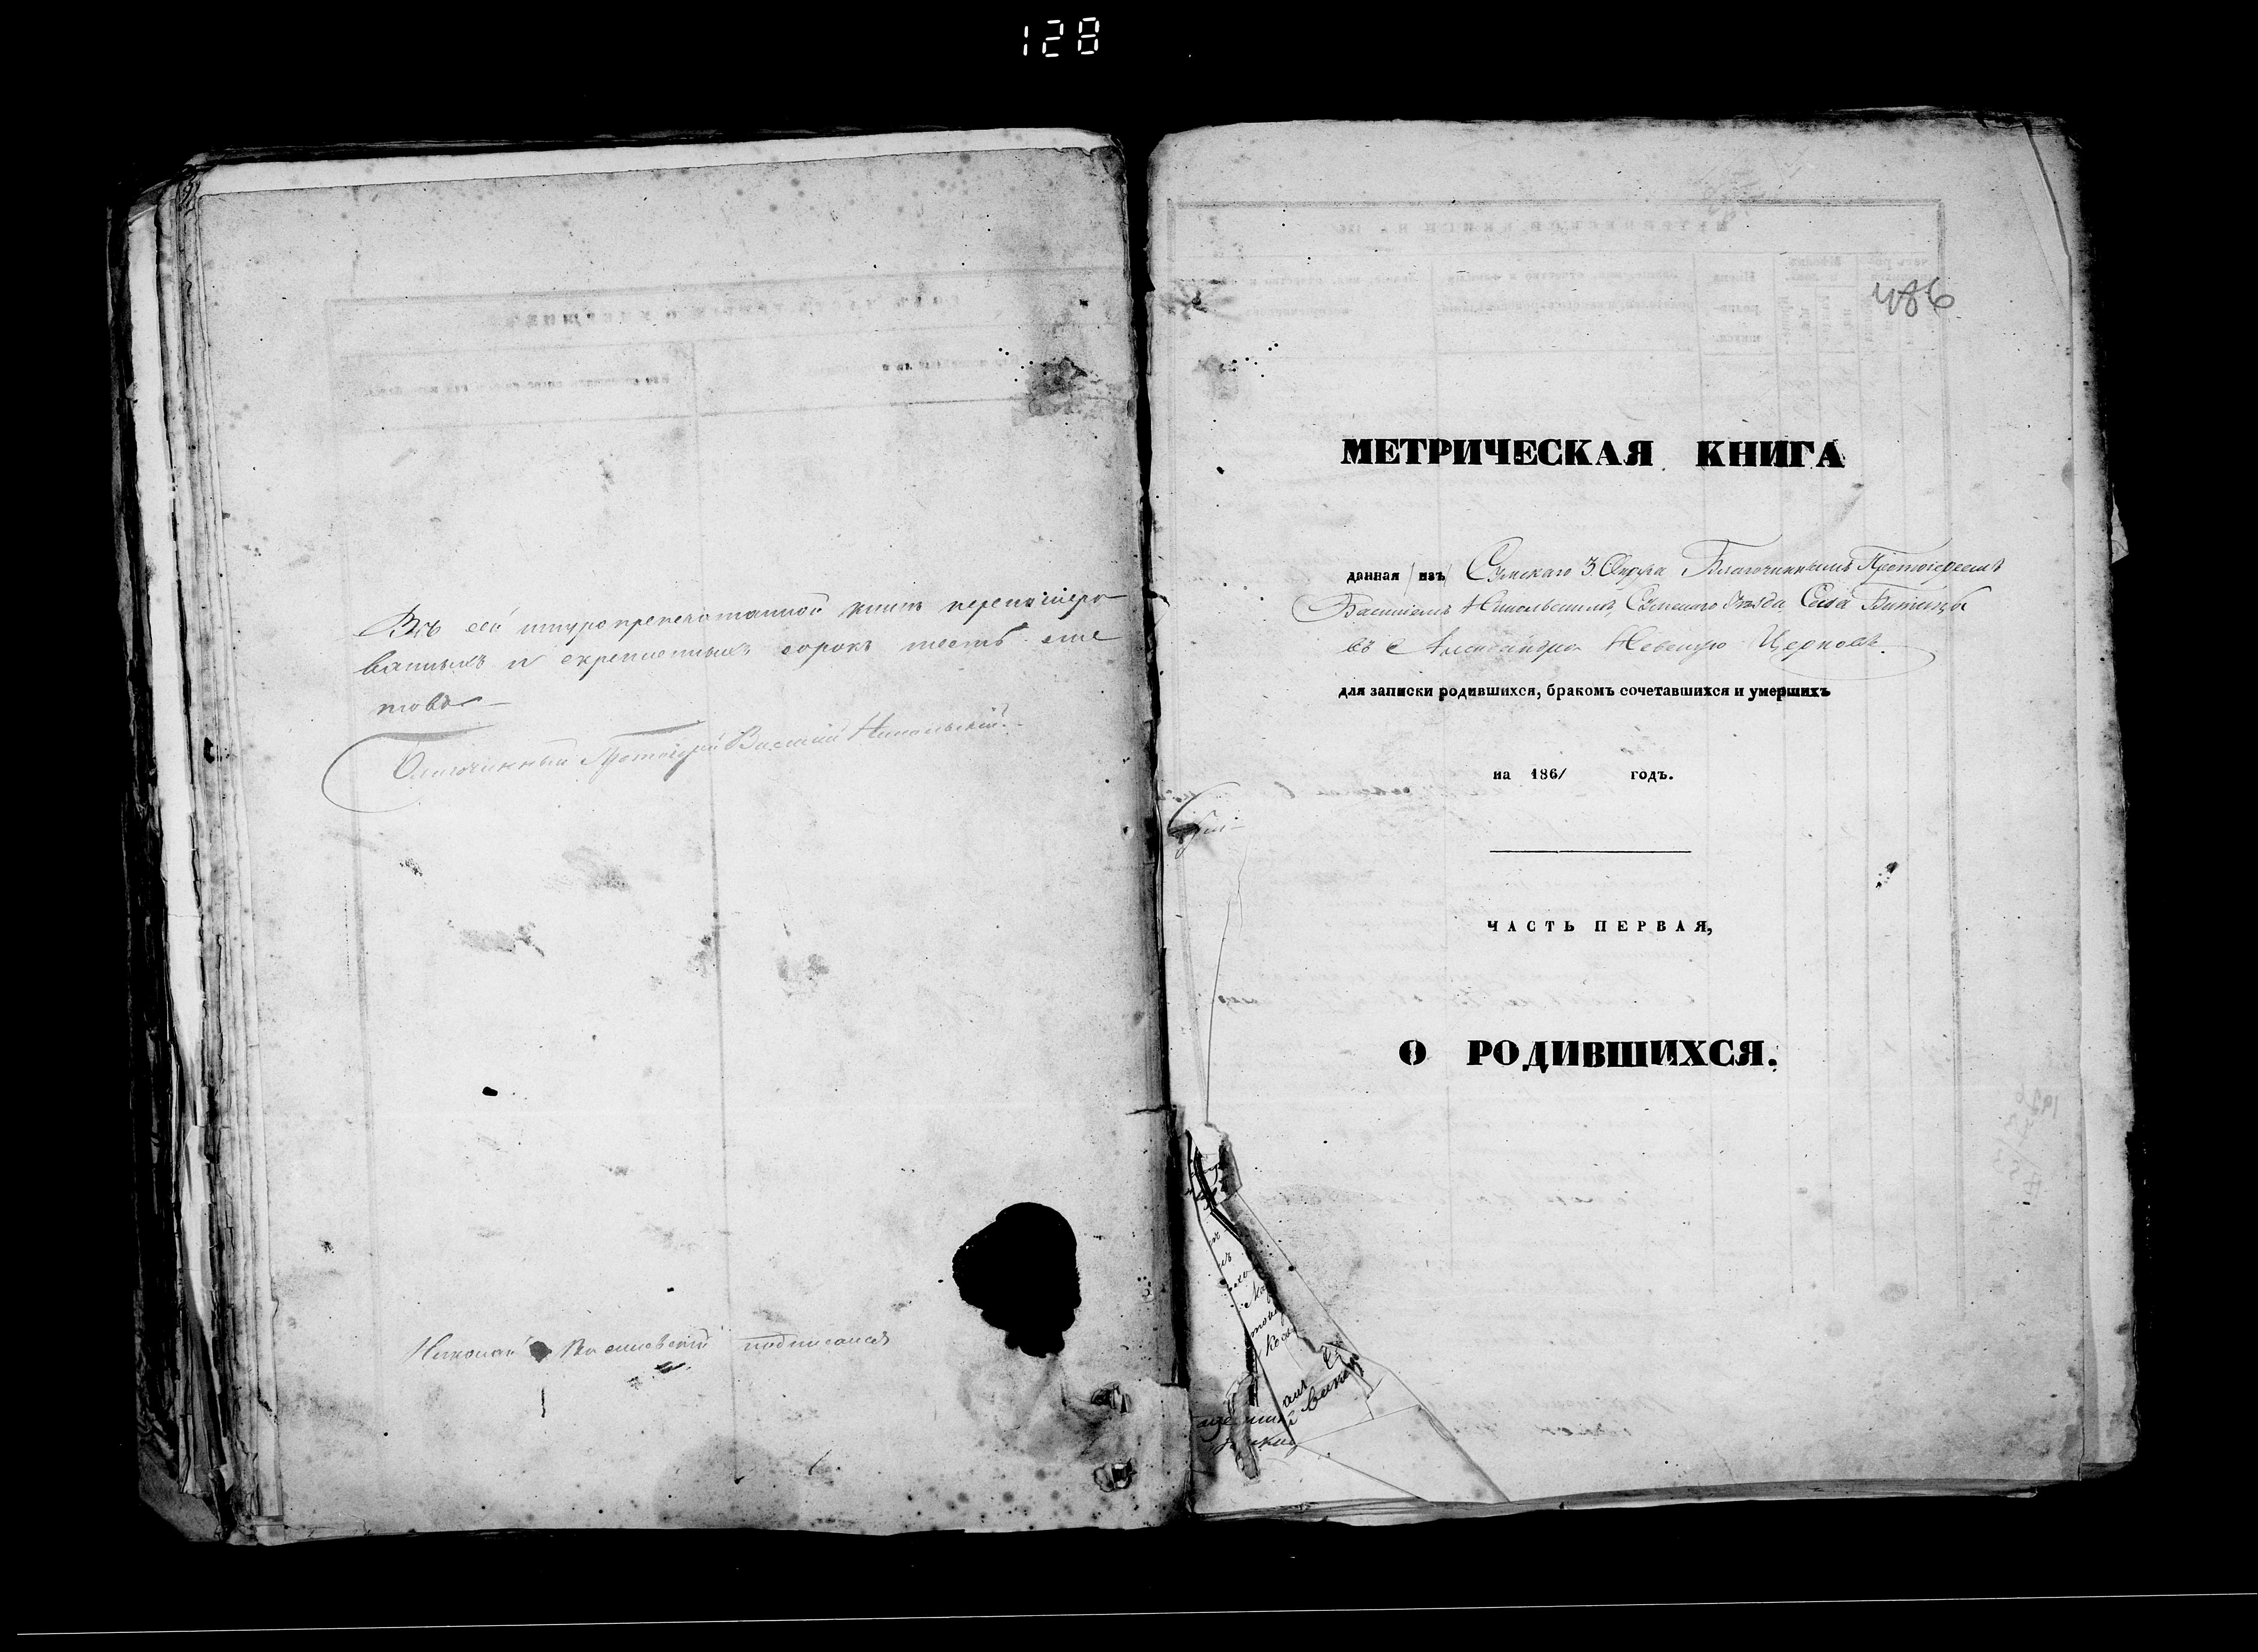 128
Въ сей шнурозапечатанной книге перенумеро
ванныхъ и скрепленныхъ сорокъ шесть лис
товъ
Благочинный Протоіерей Василій Никольскій
Николай подписался
486
МЕТРИЧЕСКАЯ КНИГА
данная изъ Сумскаго 3 Округа Благочиннымъ Протоіереемъ
Василіемъ Никольскимъ, Сумскаго Уезда Села Битицы
въ Александро Невскую Церковь.
для записки родившихся, бракомъ сочетавшихся и умершихъ
на 1861 годъ.
ЧАСТЬ ПЕРВАЯ,
О РОДИВШИХСЯ.